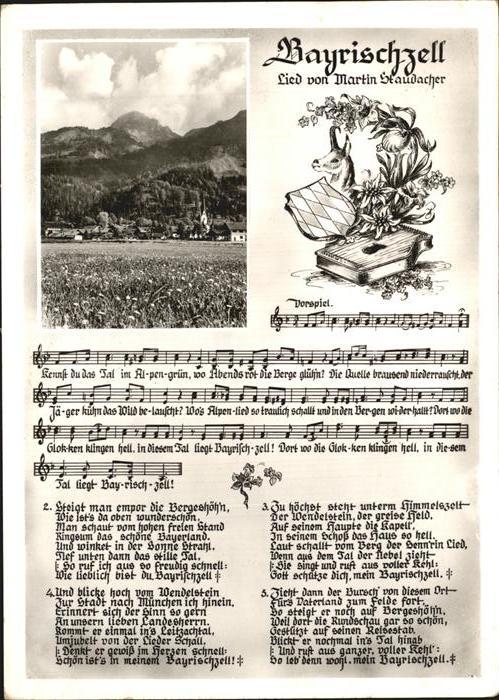 Bayrischzell
Lied von Martin Staudacher
Vorspiel.
Kennst du das Tal im Al-pen-grün, wo Abends rot die Berge glühn? Die Quelle brausend niederrauscht, der
Jä-ger kühn das Wild be-lauscht? Wo's Alpen-lied so traulich schallt und in den Ber-gen wi-der-hallt? Dort wo die
Glok-ken klingen hell, in diesem Tal liegt Bayrisch-zell! Dort wo die Glok-ken klingen hell, in die-sem
Tal liegt Bay-risch-zell!
2. Steigt man empor die Bergeshöh'n,
Wie ist's da oben wunderschön,
Man schaut vom hohen freien Stand
Ringsum das schöne Bayerland.
Und winket in der Sonne Strahl,
Tief unten dann das stille Tal,
:: So ruf ich aus so freudig schnell:
Wie lieblich bist du, Bayrischzell ::
3. Zu höchst steht unterm Himmelszelt
Der Wendelstein, der greise Held,
Auf seinem Haupte die Kapell',
In seinem Schoß das Haus so hell.
Laut schallt vom Berg der Senn'rin Lied,
Wenn aus dem Tal der Nebel zieht
:: Sie singt und ruft aus voller Kehl:
Gott schütze dich, mein Bayrischzell. ::
4. Und blicke hoch vom Wendelstein
Zur Stadt nach München ich hinein,
Erinnert sich der Sinn so gern
An unsern lieben Landesherrn.
Kommt er einmal in's Leitzachtal,
Umjubelt von der Lieder Schall,
:: Denkt er gewiß im Herzen schnell:
Schön ist's in meinem Bayrischzell! ::
5. Zieht dann der Bursch von diesem Ort
Für's Vaterland zum Felde fort,
So steigt er noch auf Bergeshöh'n,
Weil dort die Rundschau gar so schön,
Gestützt auf seinen Reisestab,
Blickt er nochmal in's Tal hinab
:: Und ruft aus ganzer, voller Kehl':
So leb' denn wohl, mein Bayrischzell. ::